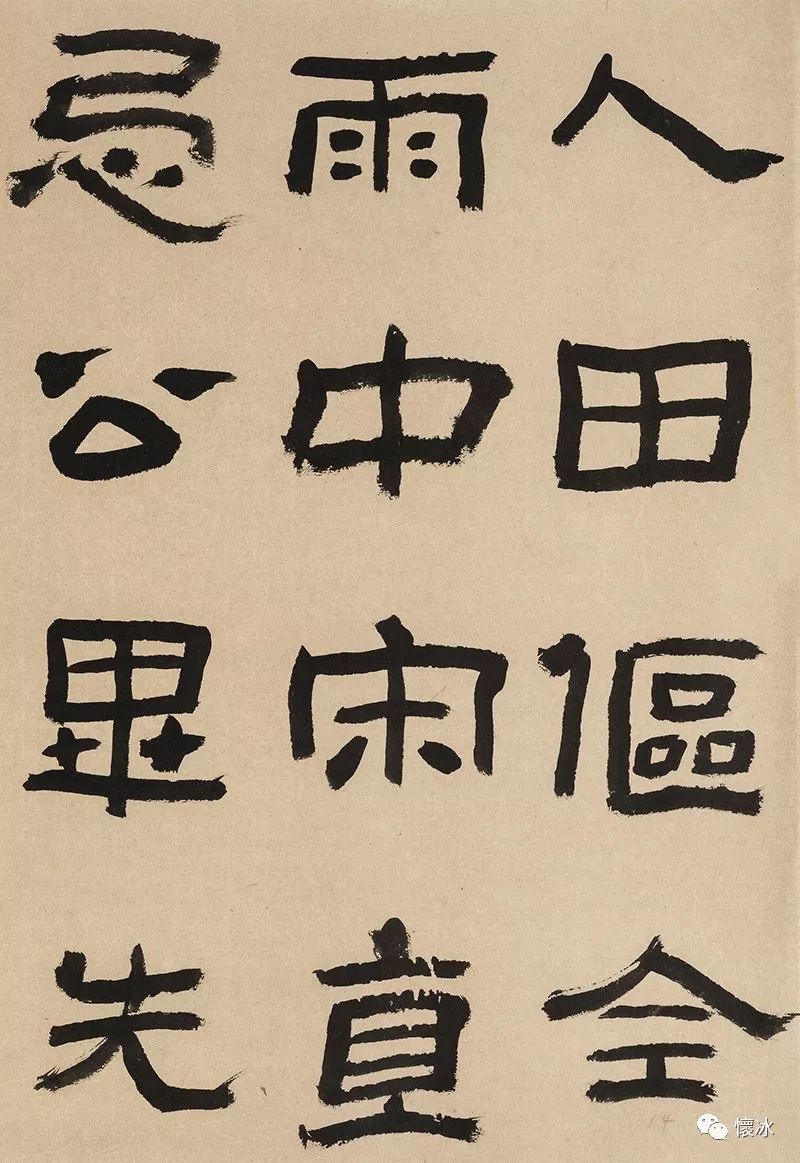 人田傴全
雨中宋直
忌公畢先
懷冰